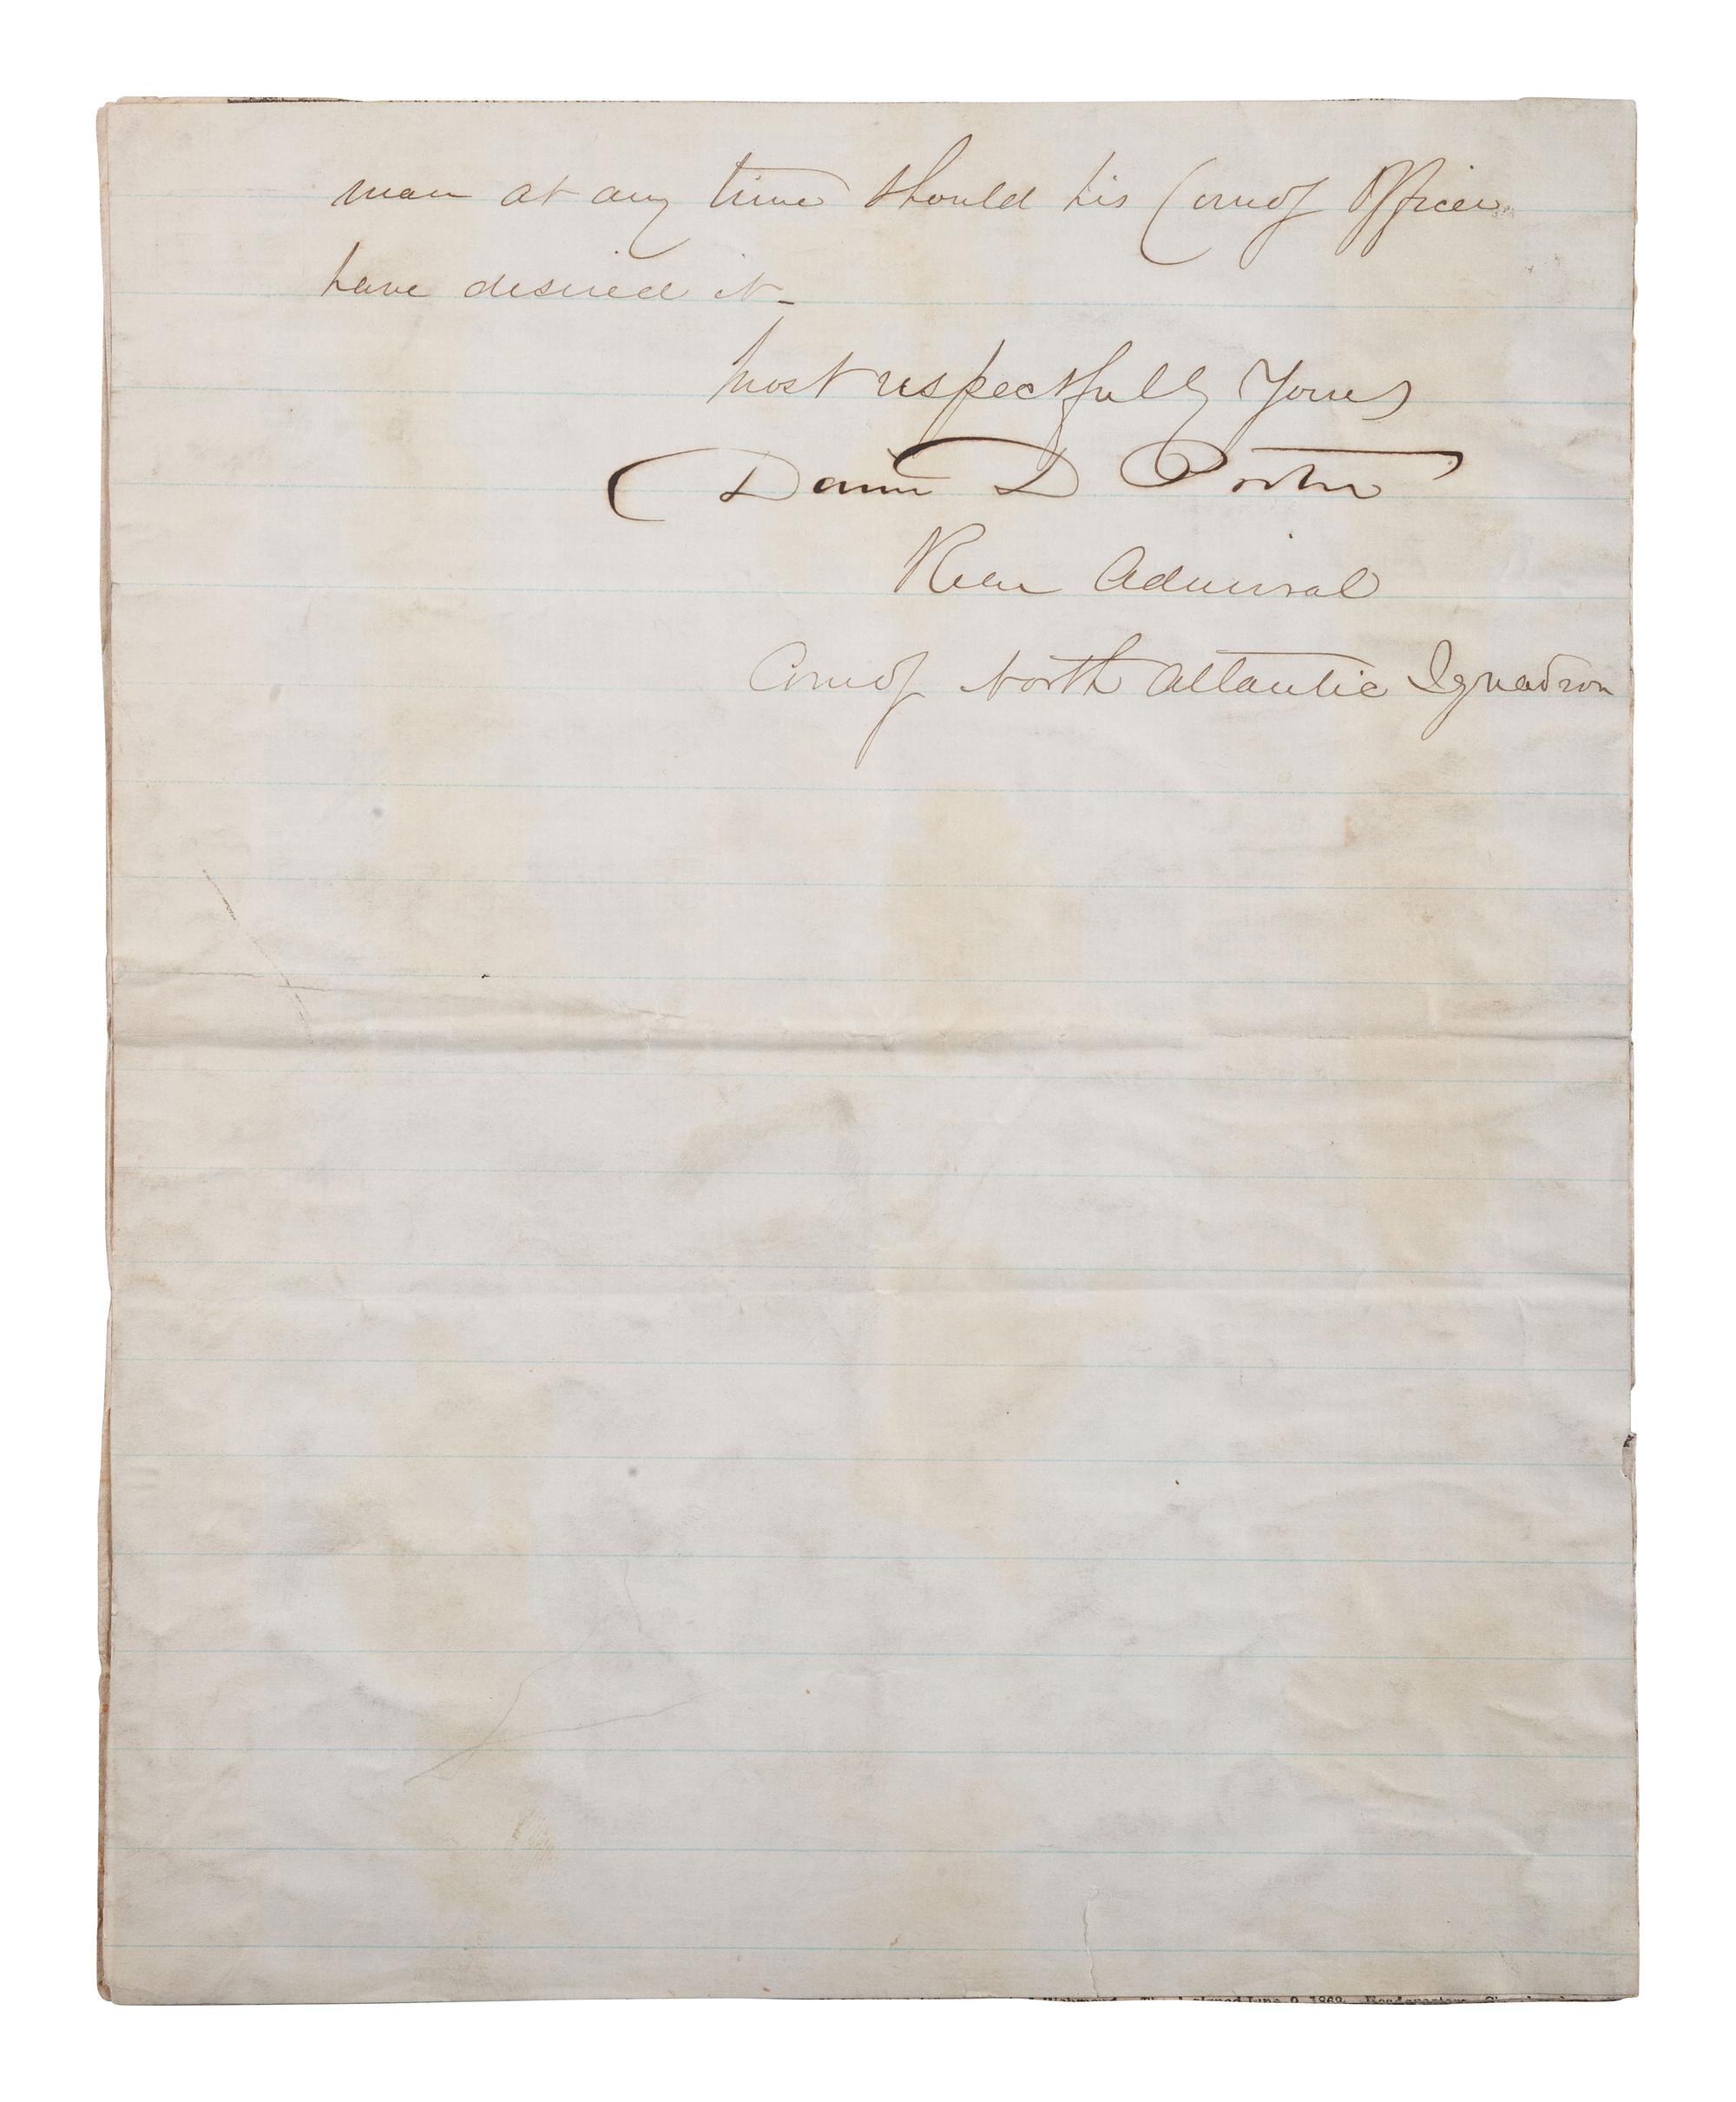 man at any time should his Comdg Officer
have desired it-
Most respectfully Yours
David D Porter
Rear Admiral
Comdg North Atlantic Squadron
June 9, 1868. Headquarters